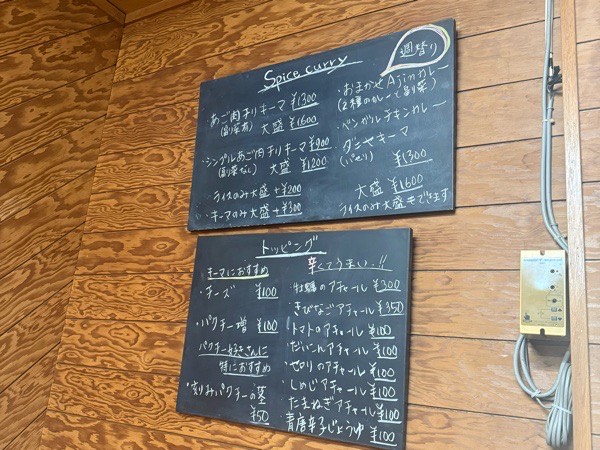 Spice curry
あご肉チリキーマ ¥1300
(副菜有) 大盛 ¥1600
・シンプルあご肉チリキーマ ¥900
(副菜なし) 大盛 ¥1200
ライスのみ大盛 +¥200
・キーマのみ大盛 +¥300
週替り
・おまかせAjinカレー
(2種のカレーと副菜)
・ベンガルチキンカレー
ダニヤキーマ
(パセリ)
¥1300
大盛 ¥1600
ライスのみ大盛もできます
トッピング
キーマにおすすめ
・チーズ ¥100
・パクチー増 ¥100
パクチー好きさんに
特におすすめ
・刻みパクチーの茎
¥50
辛くてうまい!!
牡蠣のアチャール ¥300
・きびなごアチャール ¥350
・トマトのアチャール ¥100
・だいこんアチャール ¥100
・セロリのアチャール ¥100
・しめじアチャール ¥100
・たまねぎアチャール ¥100
青唐辛子じょうゆ ¥100